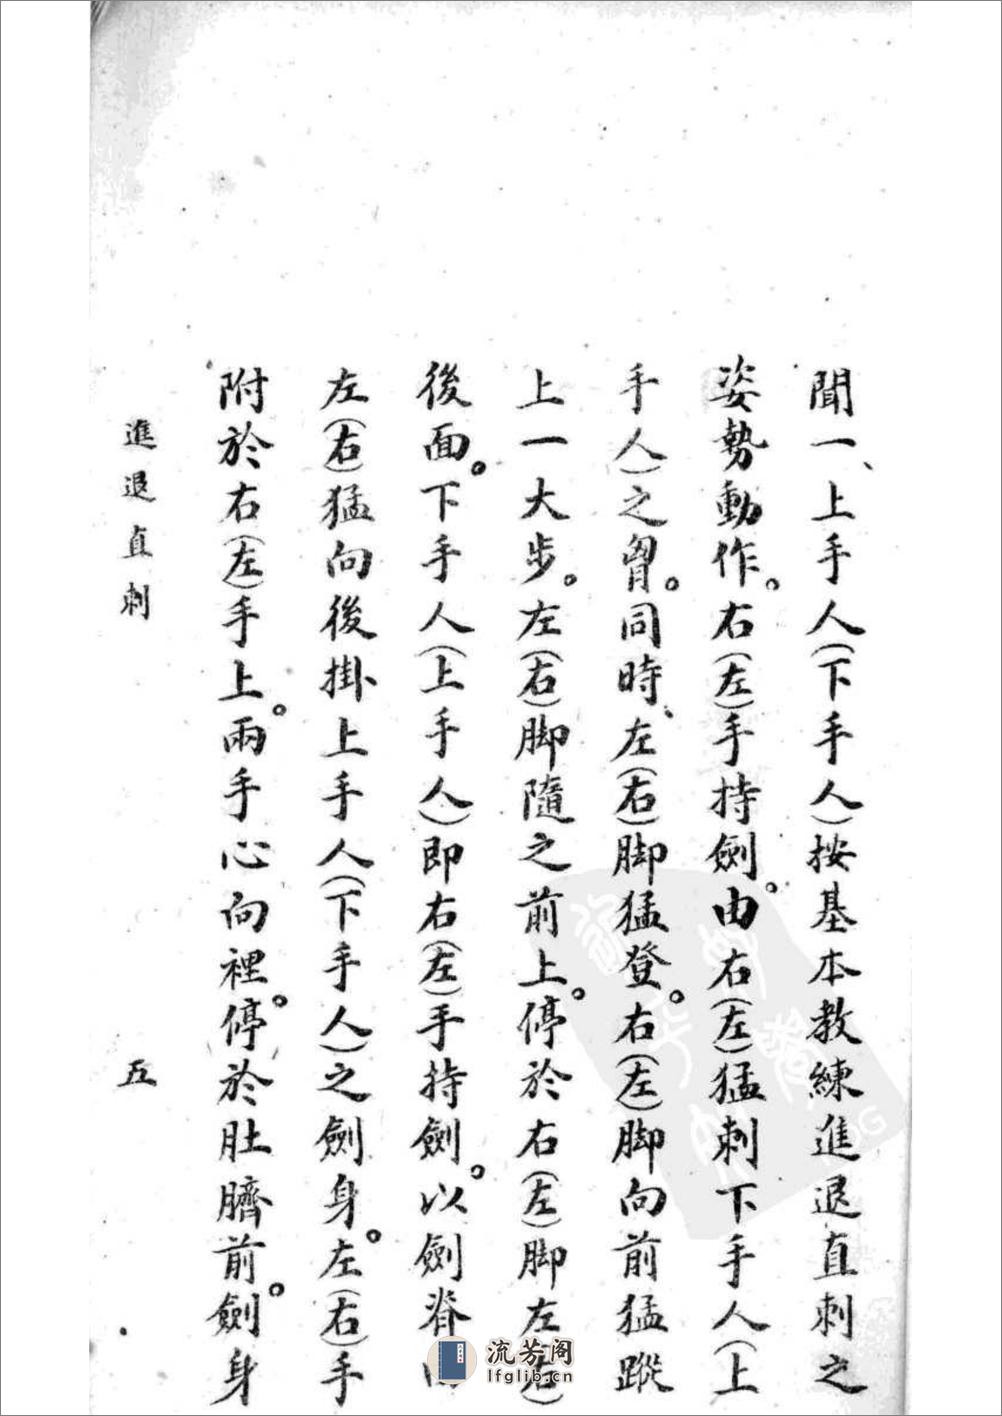 聞一、上手人（下手人）按基本教練進退直刺之
姿勢動作。右（左）手持劍。由右（左）猛刺下手人（上
手人）之胷。同時、左（右）脚猛登。右（左）脚向前猛蹤
上一大步。左（右）脚隨之前上。停於右（左）脚左（右）
後面。下手人（上手人）即右（左）手持劍。以劍脊
左（右）猛向後掛上手人（下手人）之劍身。左（右）手
附於右（左）手上。兩手心向裡。停於肚臍前。劍身
進退直刺
五
流芳阁
lfglib.cn